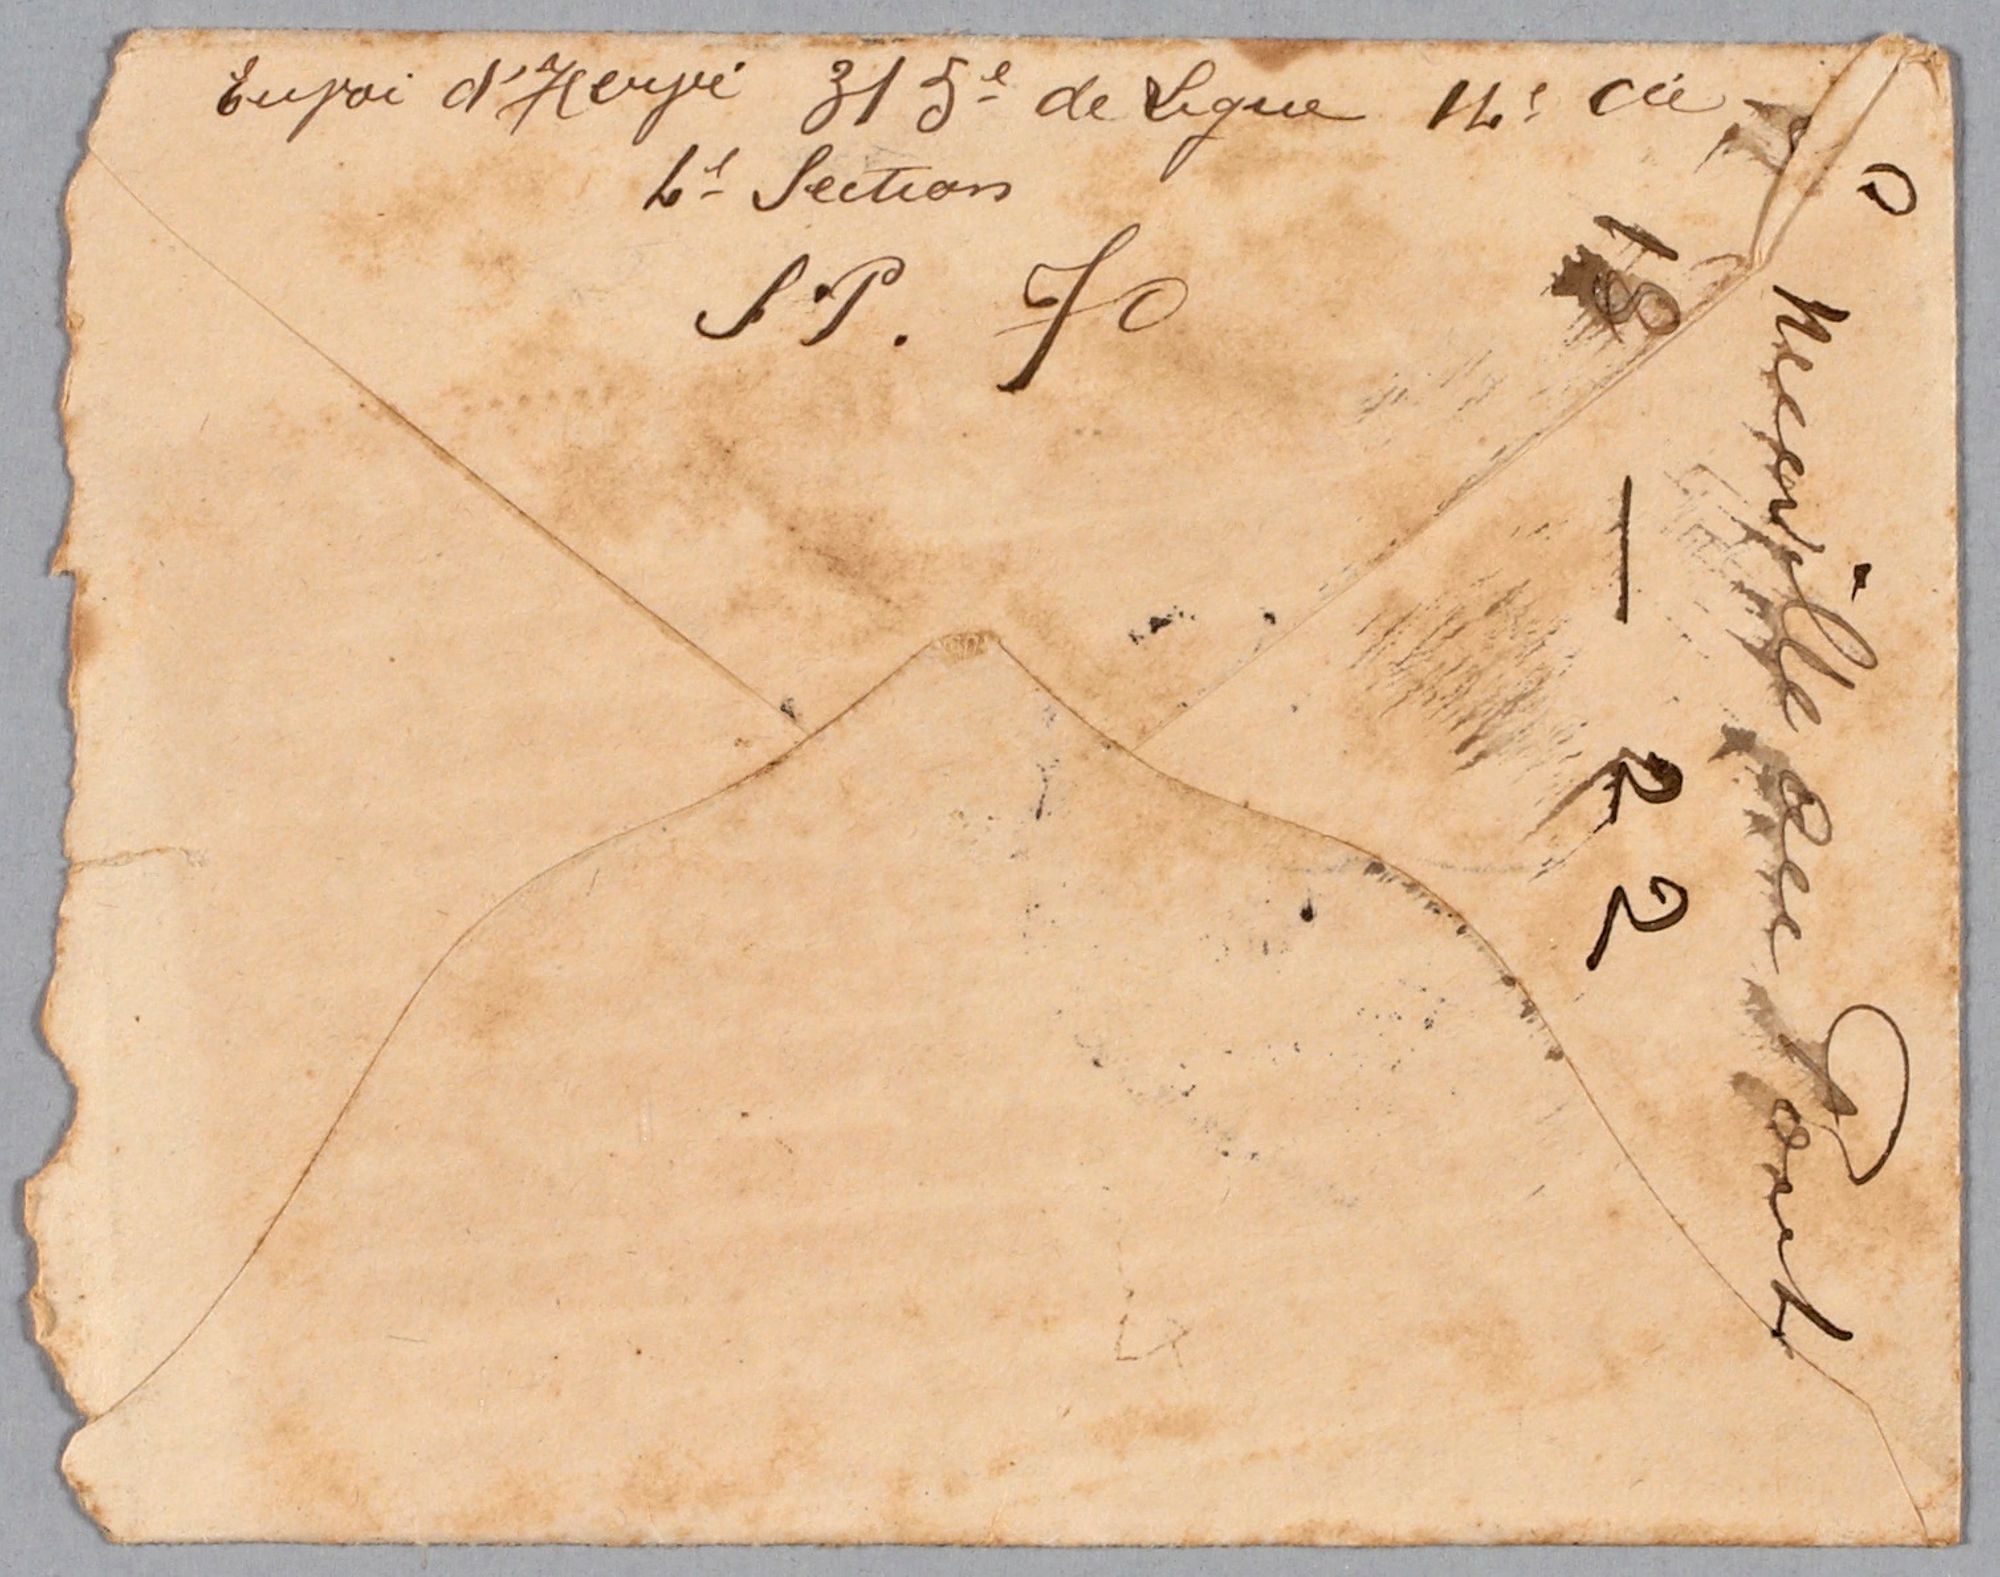 Envoi d'Hervé 315e de Ligne 14e Cie
4e Section
S.P. 70
Neerville See Pont
18 — 22